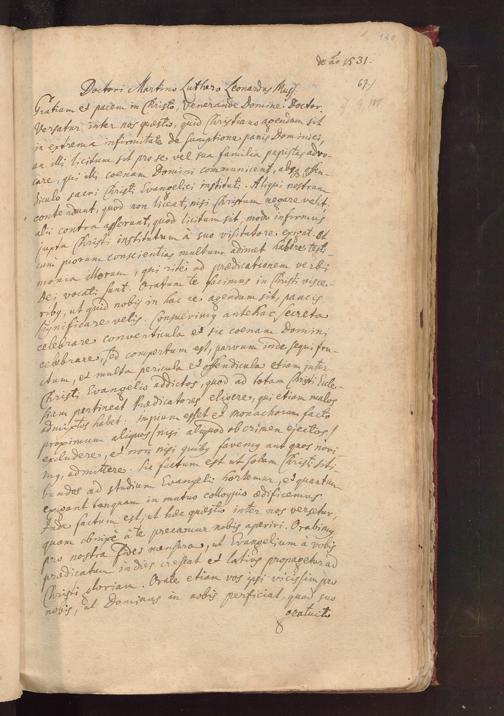 de Ao 1531.
67.
Doctori Martino Luthero Leonardus
Gratiam et pacem in Christo, Venerande Domine Doctor.
Versatur inter nos questio, quid Christiano agendum sit
in extrema infirmitate de sumptione panis Dominici,
an illi licitum sit pro se vel sua familia papistas advo-
care, qui illi coenam Domini communicent, absq offen-
diculo sacri Christi Evangelici instituti. Aliqui nostrum
contendunt, quod non liceat, nisi Christum negare velit,
alii contra asserunt, quod licitum sit, modo infirmus
juxta Christi institutum à suo visitatore exigat. Et
cum piorum conscientias multum adimet habere testi-
monia illorum, qui ritè ad praedicationem verbi
Dei vocati sunt. Oratum te facimus in Christi visce-
ribq, ut quid nobis in hac re agendum sit, paucis
significare velis. Consuevimq antehac secreta
celebrare conventicula et sic coenam Domini
celebrare, sed compertum est, parvum inde sequi fru-
ctum, et multa pericula et offendicula etiam inter
Christi Evangelio addictos, quod ad totam Christi Eccle-
siam pertineat Praedicatores eligere, qui etiam malos
admixtos habet. impium esset et monachorum facto
proximum aliquos/ nisi aliquod ob crimen ejectos/
excludere, et non nisi quibq favemq aut quos novi-
mq, admittere. Sic factum est ut Christi siti-
bundos ad studium Evangelii hortemur, et quantum
possunt tanquam in mutuo colloquio aedificemus.
Inde factum est, ut haec quaestio inter nos versetur,
quam obnixè à te precamur nobis aperiri. Orabimq
pro nostra fidei mensura, ut Evangelium à vobis
praedicatum indies crescat et latius propagetur ad
Christi gloriam. Orate etiam vos ipsi vicissim pro
nobis, ut Dominus in nobis perficiat, quod suo